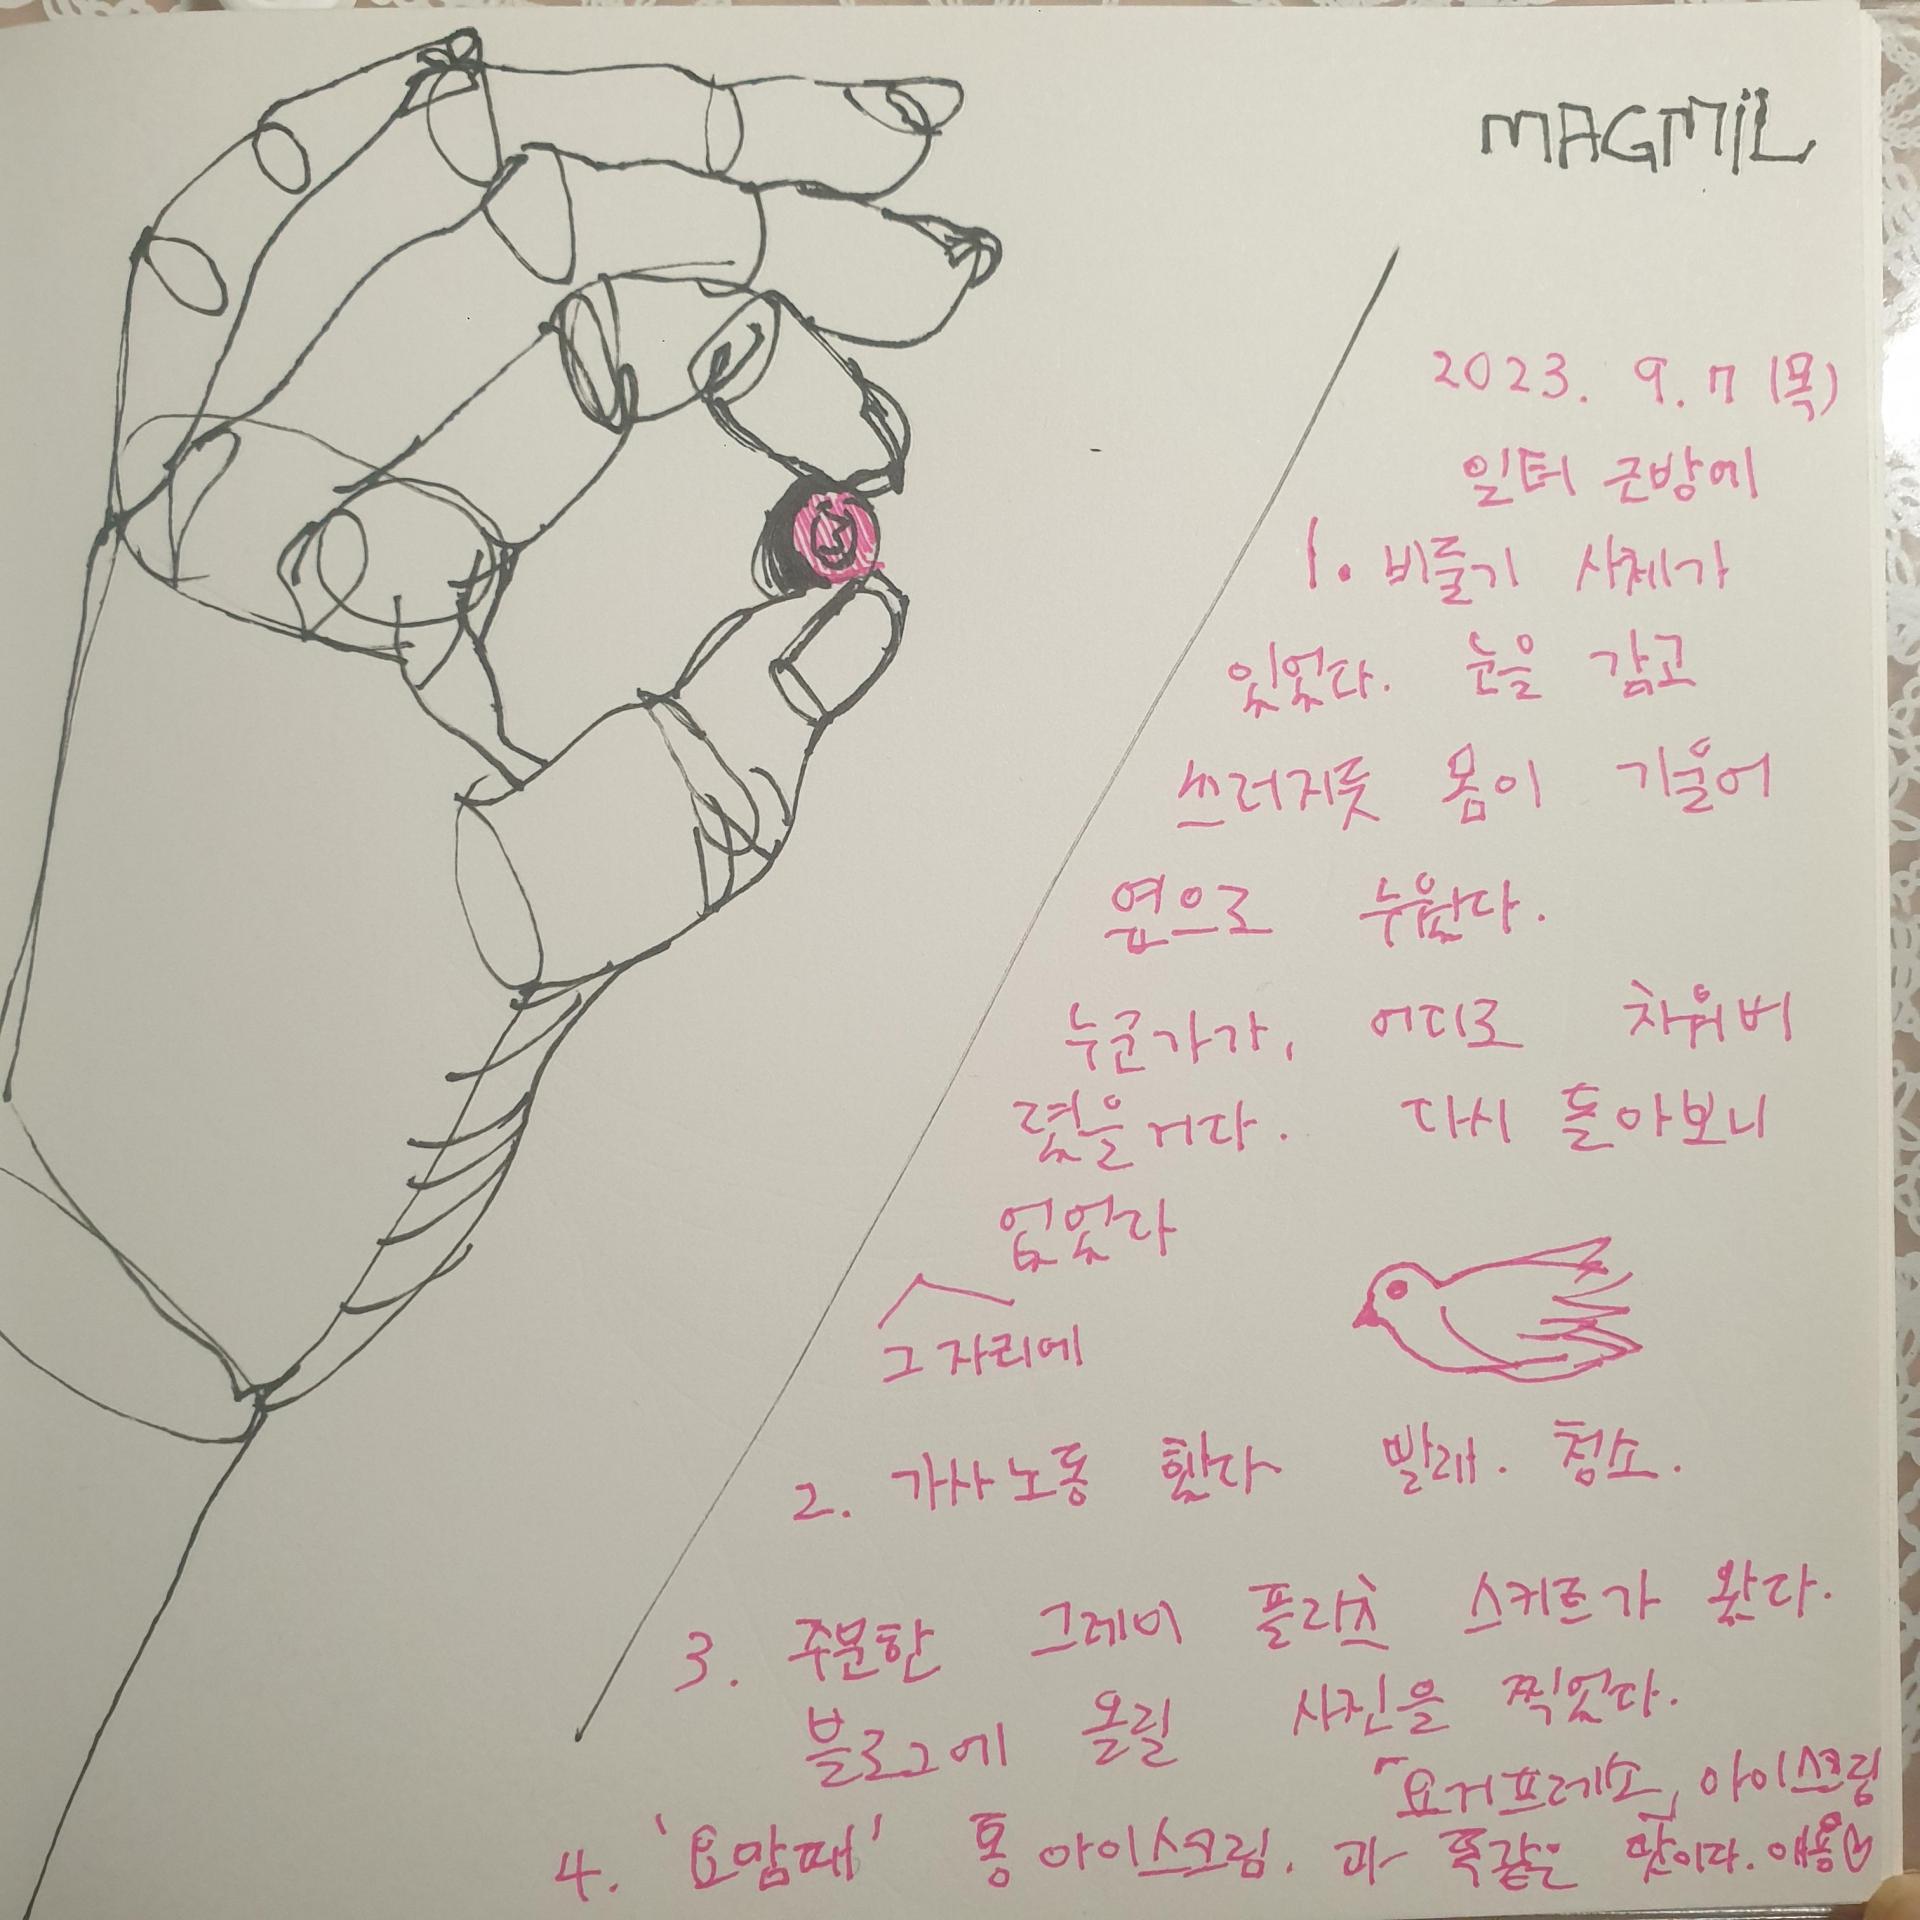 MAGMIL
2023. 9. 7 (목)
일터 근방에
1. 비둘기 사체가
있었다. 눈을 감고
쓰러지듯 몸이 기울어
옆으로 누웠다.
누군가가, 어디로 치워버
렸을거다. 다시 돌아보니
없었다
그 자리에
2. 가사노동 했다 빨래. 청소.
3. 주문한 그레이 플리츠 스커트가 왔다.
블로그에 올릴 사진을 찍었다.
「요거프레소」 아이스크림
4. '요맘때' 통 아이스크림. 과 똑같은 맛이다. 애용♡